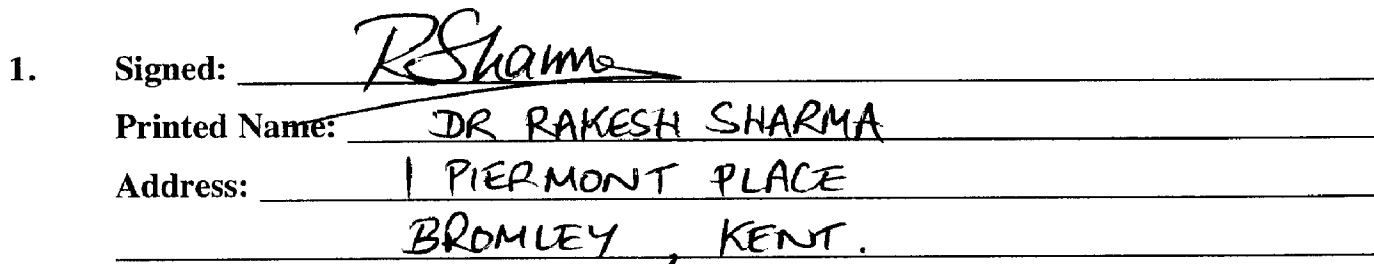 1. Signed: RSharma
Printed Name: DR RAKESH SHARMA
Address: 1 PIERMONT PLACE
BROMLEY, KENT.